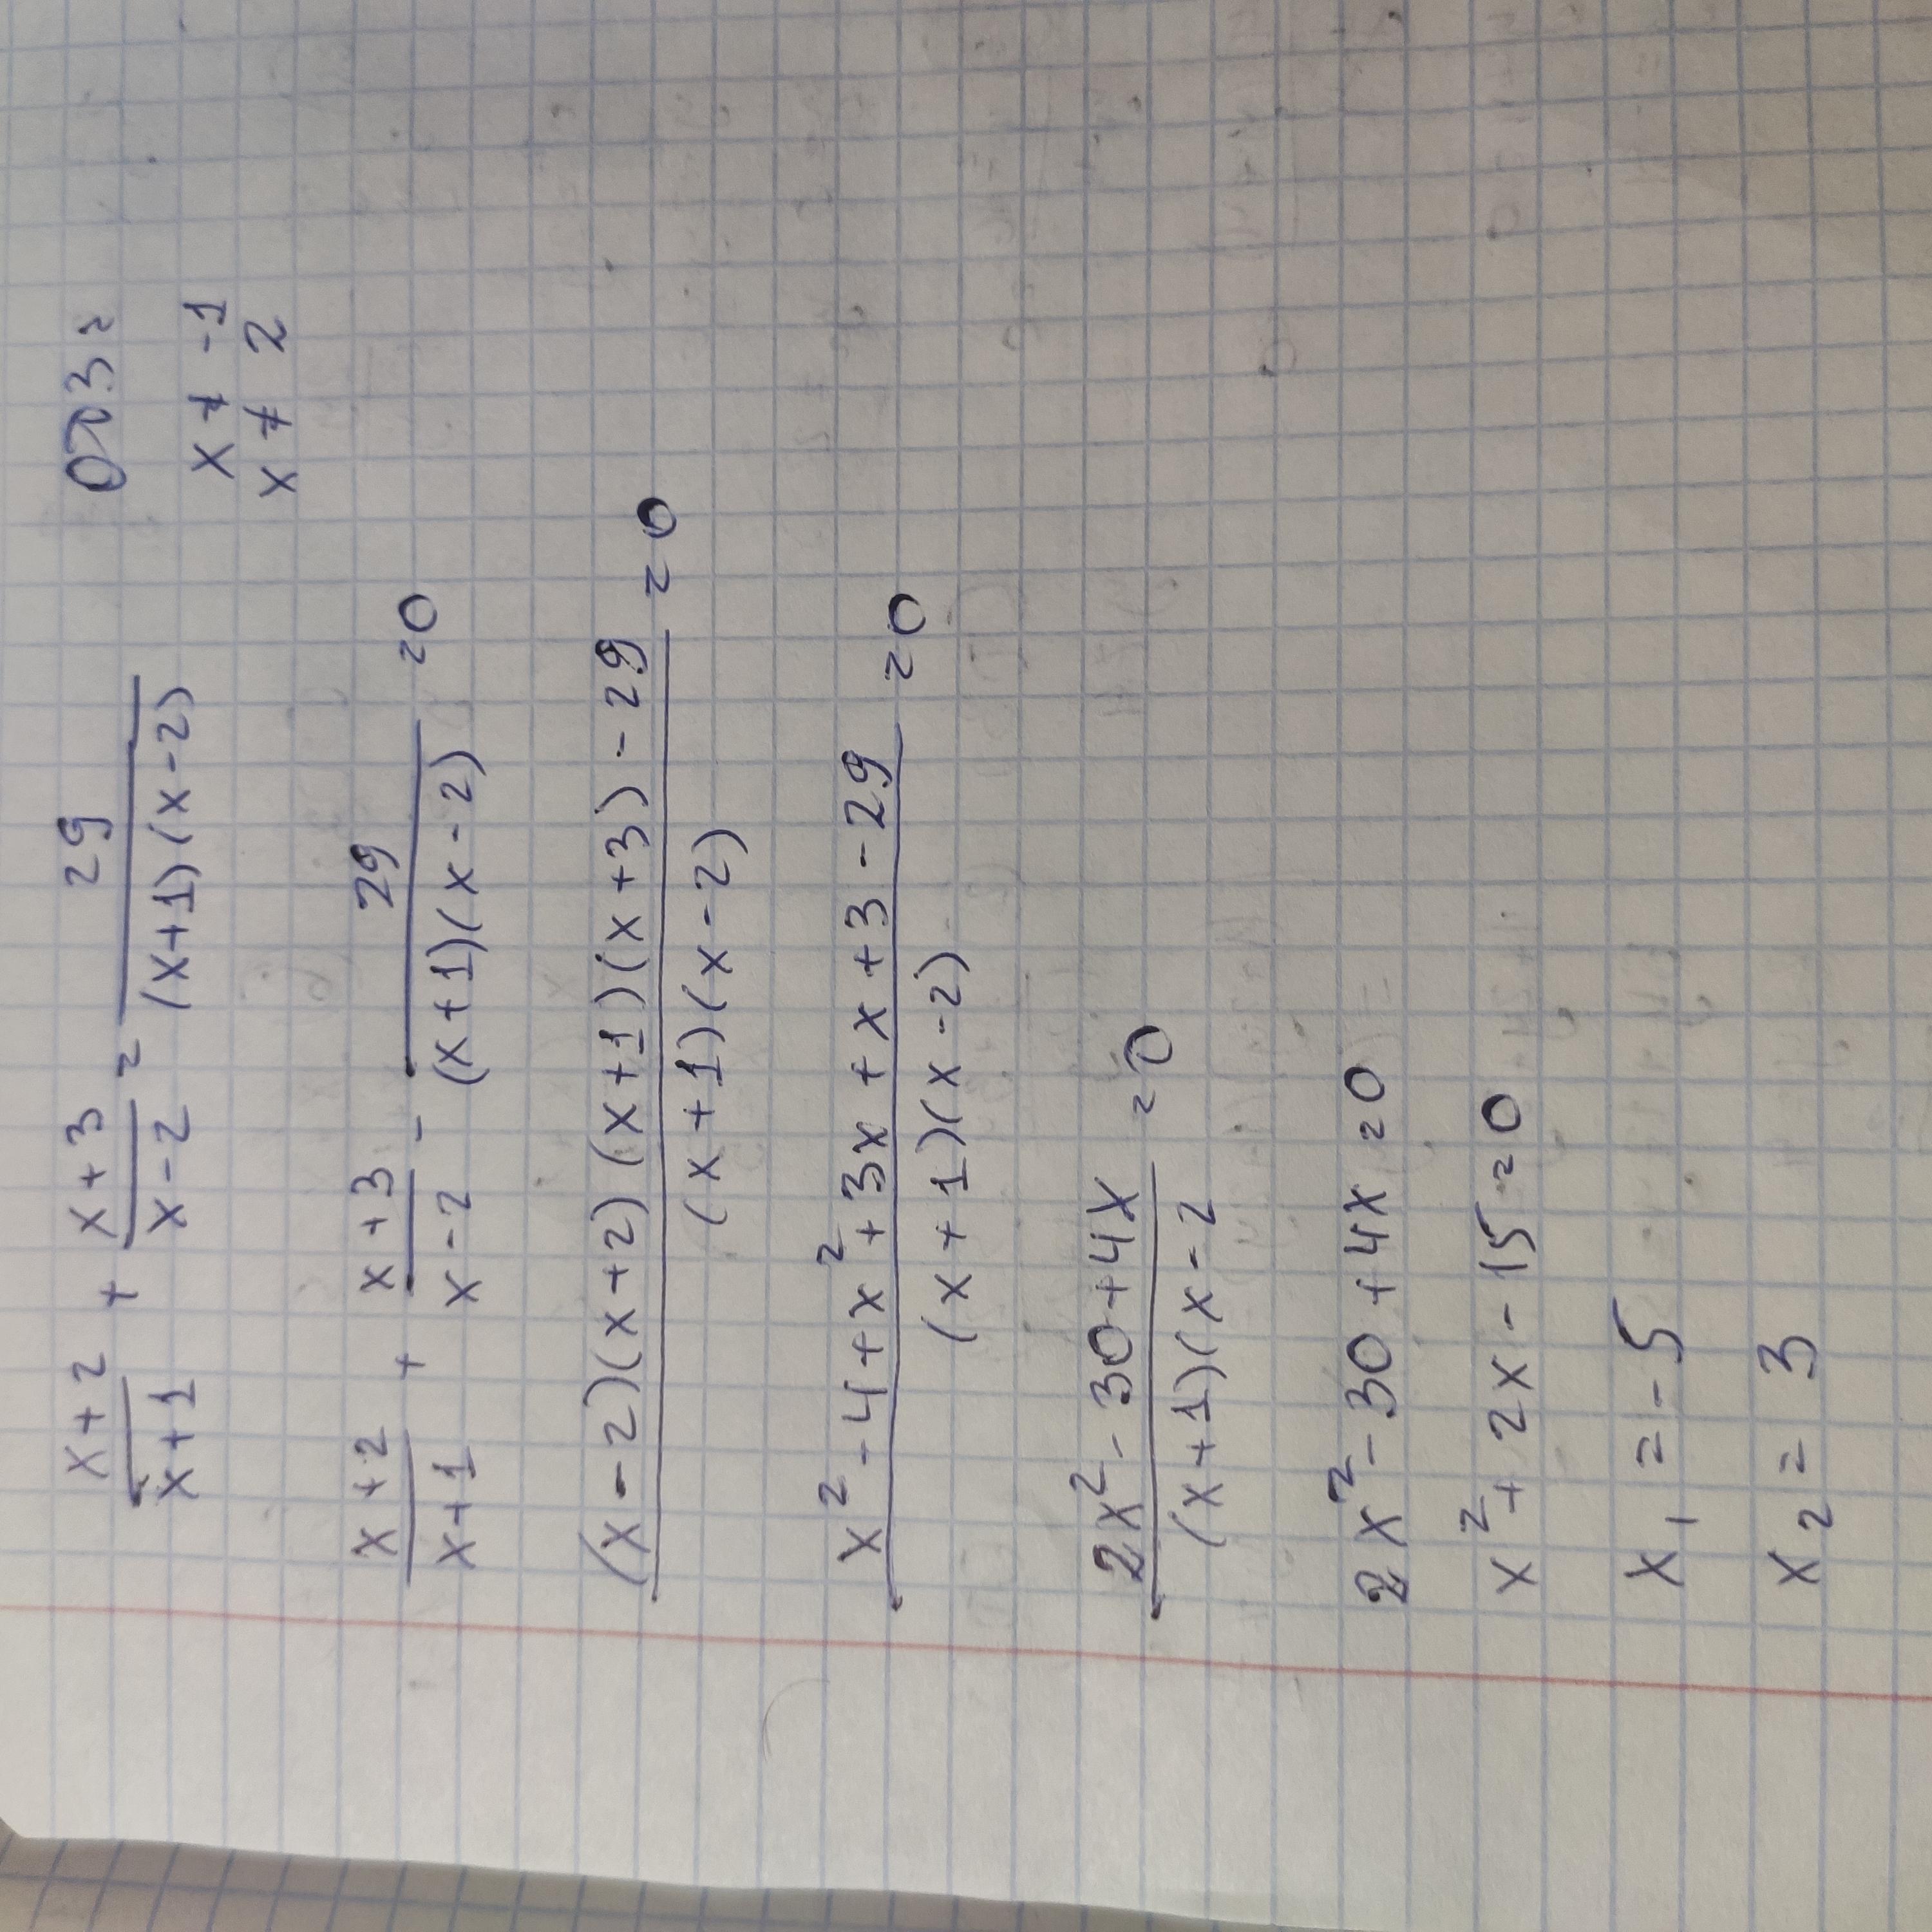 (x+2)/(x+1) + (x+3)/(x-2) = 29/((x+1)(x-2)) ОДЗ:
x ≠ -1
x ≠ 2
(x+2)/(x+1) + (x+3)/(x-2) - 29/((x+1)(x-2)) = 0
((x-2)(x+2)(x+1)(x+3)-29)/((x+1)(x-2)) = 0
(x²-4+x²+3x+x+3-29)/((x+1)(x-2)) = 0
(2x²-30+4x)/((x+1)(x-2) = 0
2x²-30+4x=0
x²+2x-15=0
x₁=-5
x₂=3